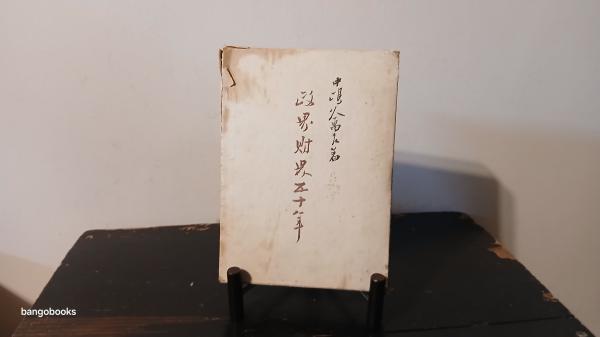 中嶋久萬吉著
政界財界五十年
bangobooks